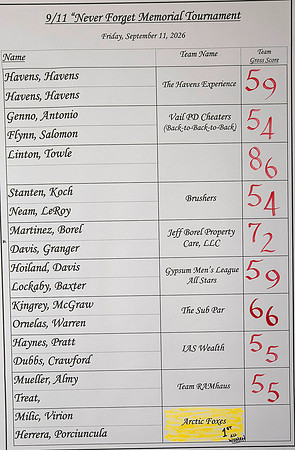 9/11 "Never Forget Memorial Tournament
Friday, September 11, 2026
Name Team Name Team Gross Score
Havens, Havens
The Havens Experience 59
Havens, Havens
Genno, Antonio
Vail PD Cheaters (Back-to-Back-to-Back) 54
Flynn, Salomon
Linton, Towle
86
Stanten, Koch
Brushers 54
Neam, LeRoy
Martinez, Borel
Jeff Borel Property Care, LLC 72
Davis, Granger
Hoiland, Davis
Gypsum Men's League All Stars 59
Lockaby, Baxter
Kingrey, McGraw
The Sub Par 66
Ornelas, Warren
Haynes, Pratt
IAS Wealth 55
Dubbs, Crawford
Mueller, Almy
Team RAMhaus 55
Treat,
Milic, Virion
Arctic Foxes
1st
Herrera, Porciuncula